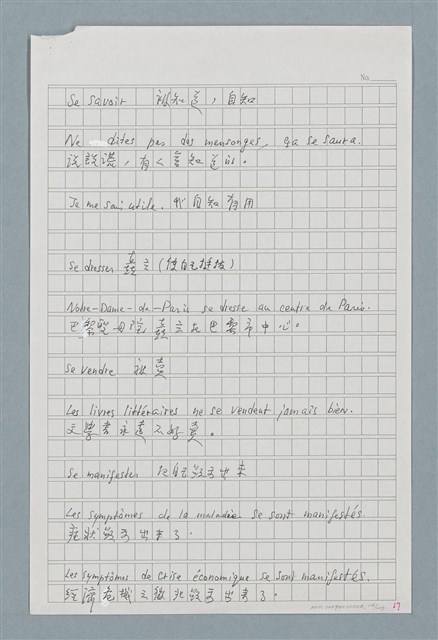 No.
Se savoir 被知道，自知
Ne dites pas des mensonges, ça se saura.
說謊，有人會知道的。
Je me sais utile. 我自知有用
Se dresser 矗立 (使自己挺拔)
Notre-Dame-de-Paris se dresse au centre de Paris.
巴黎聖母院矗立在巴黎市中心。
Se vendre 被賣
Les livres littéraires ne se vendent jamais bien.
文學書永遠不好賣。
Se manifester 把自己顯露出來
Les symptômes de la maladie se sont manifestés.
症狀顯露出來了.
Les symptômes de crise économique se sont manifestés.
經濟危機之徵兆顯露出來了.
17